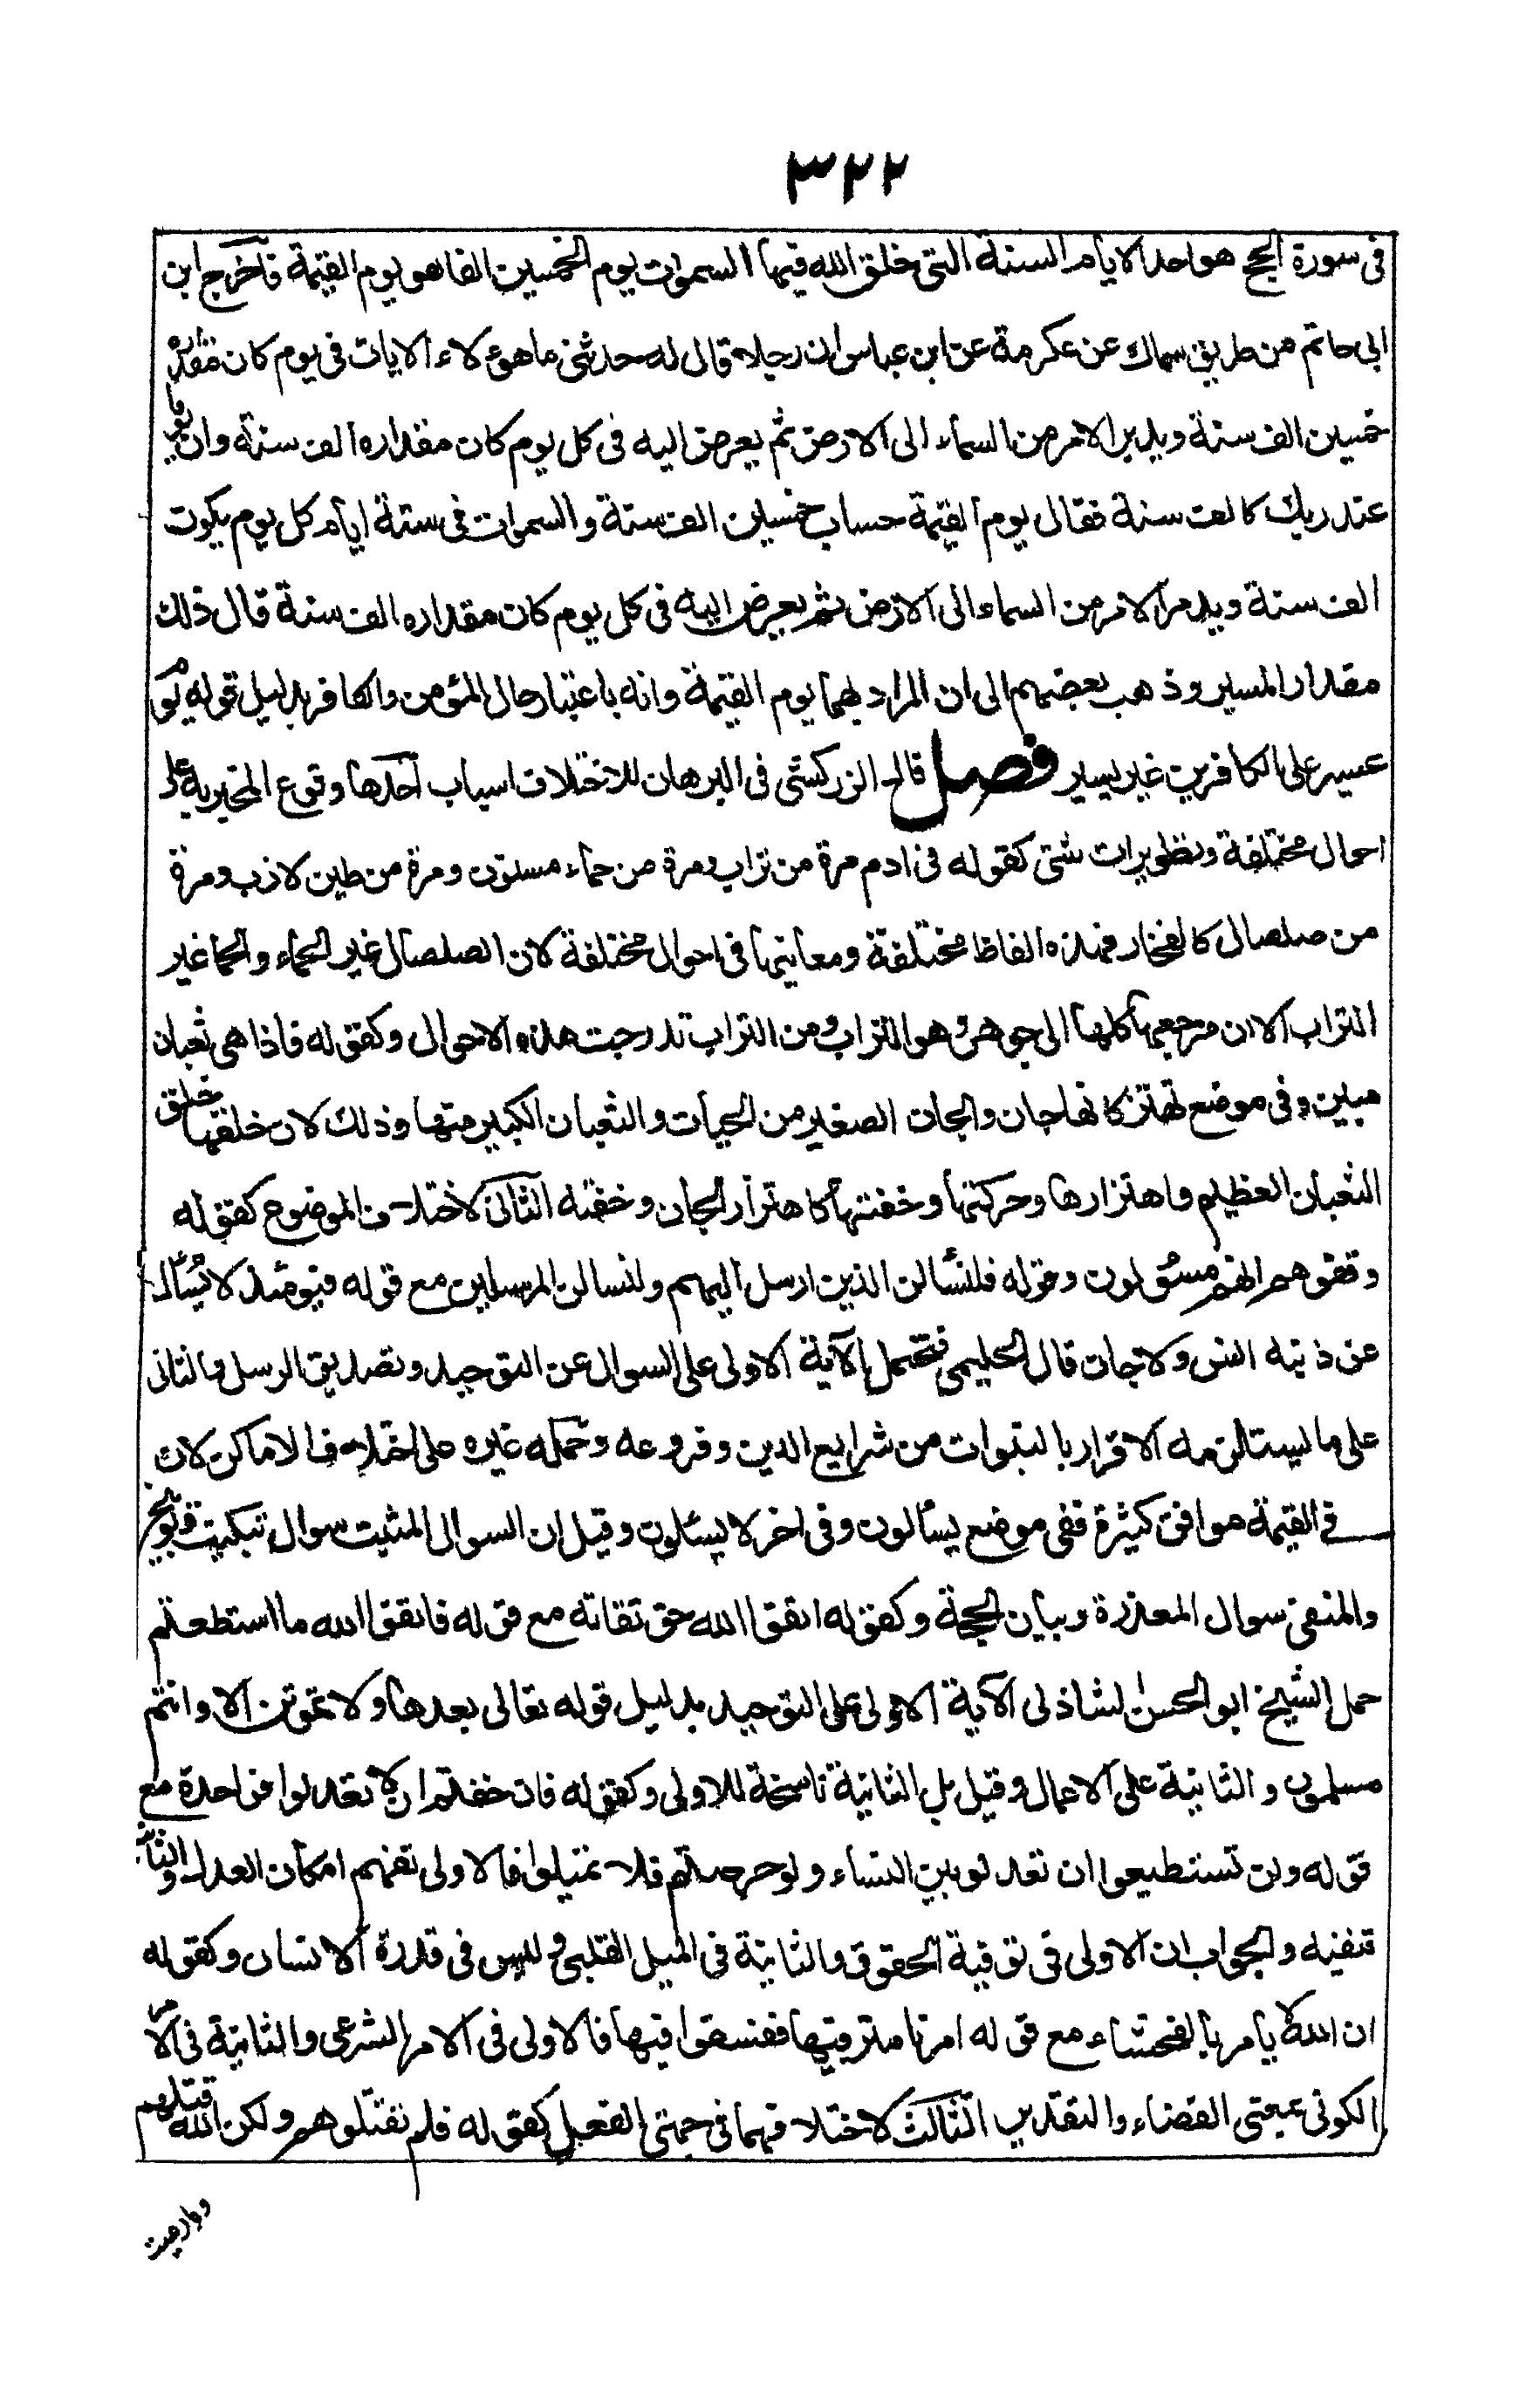 ٣٢٢
فى سورة الحج هو احد الايام الستة التى خلق الله فيها السموات يوم الخمسين الفا هو يوم القيمة فاخرج ابن
ابى حاتم من طريق سماك عن عكرمة عن ابن عباس ان رجلا قال له حدثنى ما هؤلاء الايات فى يوم كان مقداره
خمسين الف سنة ويدبر الامر من السماء الى الارض ثم يعرض اليه فى كل يوم كان مقداره الف سنة وان يوما
عند ربك كالف سنة فقال يوم القيمة حساب خمسين الف سنة والسموات فى ستة ايام كل يوم يكون
الف سنة ويدبر الامر من السماء الى الارض ثم يعرض اليه فى كل يوم كان مقداره الف سنة قال ذلك
مقدار المسير وذهب بعضهم الى ان المراد بهما يوم القيمة وانه باعتبار حال المؤمن والكافر بدليل قوله يوم
عسير على الكافرين غير يسير فصل قال الزركشى فى البرهان للاختلاف اسباب احدها وقوع المخبر به على
احوال مختلفة وتطويرات شتى كقوله فى ادم مرة من تراب ومرة من حماء مسنون ومرة من طين لازب ومرة
من صلصال كالفخار فهذه الفاظ مختلفة ومعانيها فى احوال مختلفة لان الصلصال غير الحماء والحما غير
التراب الا ان مرجعها كلها الى جوهر وهو التراب ومن التراب تدرجت هذه الاحوال وكقوله فاذا هى ثعبان
مبين وفى موضع تهتز كانها جان والجان الصغير من الحيات والثعبان الكبير منها وذلك لان خلقها خلق
الثعبان العظيم واهتزازها وحركتها وخفتها كاهتزاز الجان وخفته الثانى لاختلاف الموضوع كقوله
وقفوهم انهم مسؤلون وقوله فلنسألن الذين ارسل اليهم ولنسالن المرسلين مع قوله فيومئذ لا يسأل
عن ذنبه انس ولا جان قال الحليمى فتحمل الآية الاولى على السوال عن التوحيد وتصديق الرسل والثانى
على ما يستلزمه الاقرار بالنبوات من شرايع الدين وفروعه وحمله غيره على اختلاف الاماكن لان
فى القيمة مواقف كثيرة ففى موضع يسألون وفى اخر لا يسئلون وقيل ان السوال المثبت سوال تبكيت وتوبيخ
والمنفى سوال المعذرة وبيان الحجة وكقوله اتقوا الله حق تقاته مع قوله فاتقوا الله ما استطعتم
حمل الشيخ ابو الحسن الشاذلى الآية الاولى على التوحيد بدليل قوله تعالى بعدها ولا تموتن الا وانتم
مسلمون والثانية على الاعمال وقيل بل الثانية ناسخة للاولى وكقوله فان خفتم ان لا تعدلوا فواحدة مع
قوله ولن تستطيعوا ان تعدلو بين النساء ولو حرصتم فلا تميلوا فالاولى تفهم امكان العدل والثانية
تنفيه والجواب ان الاولى فى توفية الحقوق والثانية فى الميل القلبى وليس فى قدرة الانسان وكقوله
ان الله لا يأمر بالفحشاء مع قوله امرنا مترفيها ففسقوا فيها فالاولى فى الامر الشرعى والثانية فى الامر
الكونى بمعنى القضاء والتقدير الثالث لاختلافهما فى جهتى الفعل كقوله فلم تقتلوهم ولكن الله قتلهم
وما رميت